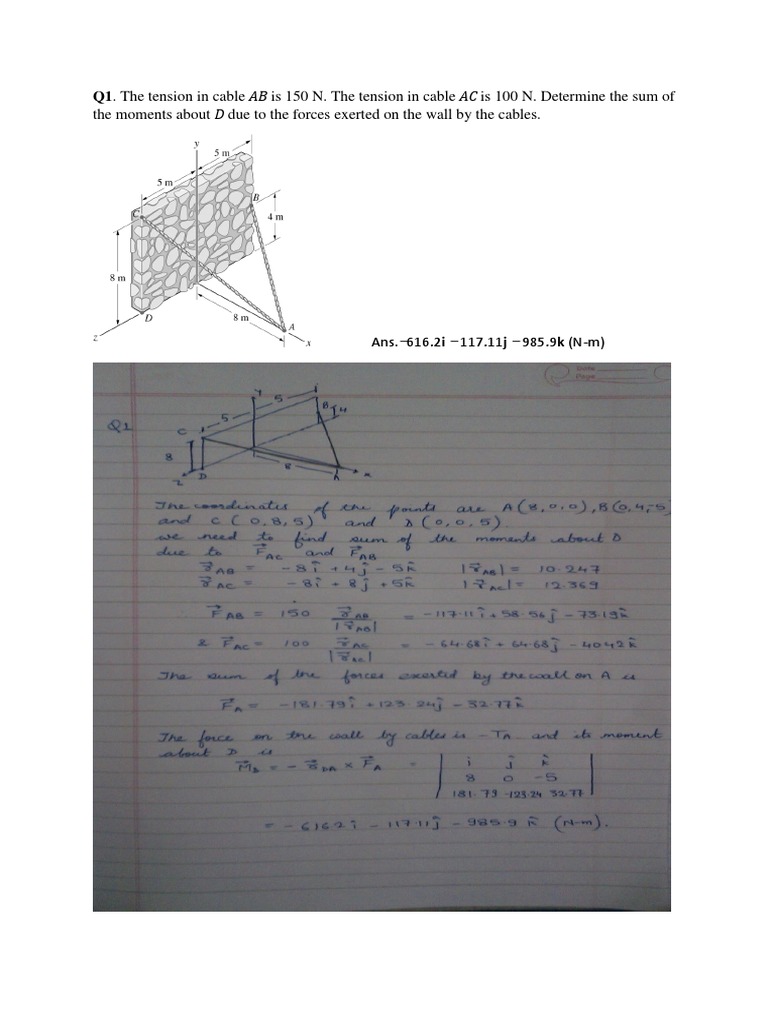 Q1. The tension in cable AB is 150 N. The tension in cable AC is 100 N. Determine the sum of
the moments about D due to the forces exerted on the wall by the cables.
y
5 m
5 m
B
C
4 m
8 m
D
8 m
A
z
x
Ans. −616.2i − 117.11j − 985.9k (N-m)
Date
Page
Q1
Y
5
5
B
4
C
8
8
Z
D
A
x
The coordinates of the points are A(8,0,0), B(0,4,-5)
and C(0,8,5) and D(0,0,5).
we need to find sum of the moments about D
due to F⃗AC and F⃗AB
r⃗AB = -8î + 4ĵ - 5k̂ |r⃗AB| = 10.247
r⃗AC = -8î + 8ĵ + 5k̂ |r⃗AC| = 12.369
F⃗AB = 150 r⃗AB / |r⃗AB| = -117.11î + 58.56ĵ - 73.19k̂
& F⃗AC = 100 r⃗AC / |r⃗AC| = -64.68î + 64.68ĵ - 40.42k̂
The sum of the forces exerted by the wall on A is
F⃗A = -181.79î + 123.24ĵ - 32.77k̂
The force on the wall by cables is -TA and its moment
about D is
M⃗D = - r⃗DA × F⃗A = | i ĵ k̂ |
8 0 -5
181.79 -123.24 32.77
= -616.2î - 117.11ĵ - 985.9k̂ (N-m).